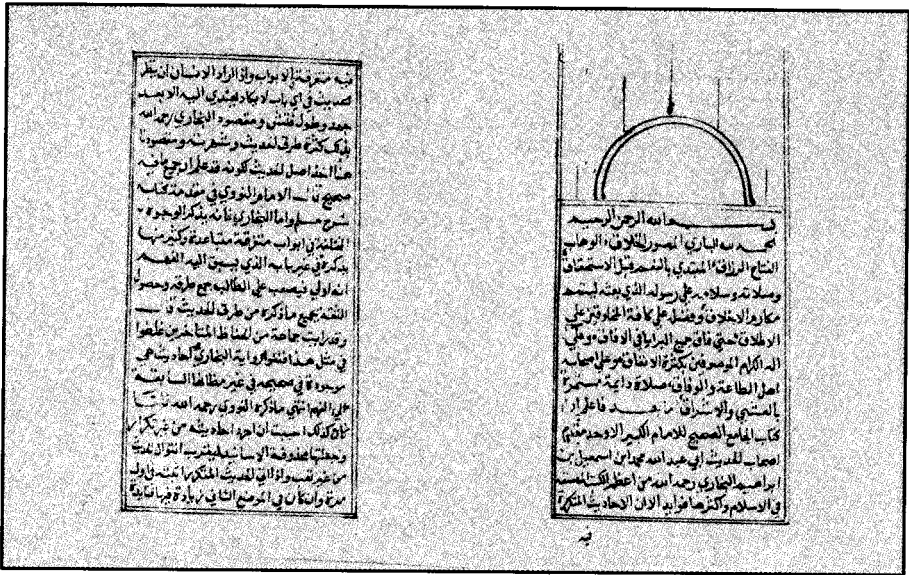 بسم الله الرحمن الرحيم
الحمد لله الباري المصور الخلاق الوهاب
الفتاح الرزاق المبتدي بالنعم قبل الاستحقاق
وصلاته وسلامه على رسوله الذي بعثه ليتمم
مكارم الاخلاق وفضله على كافة المخلوقين على
الاطلاق حتى فاق جميع البرايا في الافاق وعلى
اله الكرام الموصوفين بكثرة الانفاق وعلى اصحابه
اهل الطاعة والوفاق صلاة دايمة مستمرة
بالعشي والاشراق اما بعد فاعلم ان
كتاب الجامع الصحيح للامام الكبير الاوحد مقدم
اصحاب الحديث ابي عبد الله محمد ابن اسمعيل بن
ابراهيم البخاري رحمه الله من اعظم الكتب المصنفة
في الاسلام واكثرها فوايد الا ان الاحاديث المتكررة
فيه
فيه متفرقة في الابواب واذا اراد الانسان ان ينظر
الحديث في اي باب لا يكاد يهتدي اليه الا بعد
جهد وطول فتش ومقصود البخاري رحمه الله
بذلك كثرة طرق الحديث وشهرته ومقصودنا
هنا اخذ اصل الحديث لكونه قد علم ان جميع ما فيه
صحيح قال الامام النووي في مقدمة كتابه
شرح مسلم واما البخاري فانه يذكر الوجوه
المختلفة في ابواب متفرقة متباعدة وكثير منها
يذكره في غير بابه الذي يسبق اليه الفهم
انه اولى فيصعب على الطالب جمع طرقه وحصول
الثقة بجميع ما ذكره من طرق الحديث قال
وقد رايت جماعة من الحفاظ المتاخرين غلطوا
في مثل هذا فنفوا رواية البخاري احاديث هي
موجودة في صحيحه في غير مظانها السابقة
الى الفهم انتهى ما ذكره النووي رحمه الله فلما
كان كذلك احببت ان اجرد احاديثه من غير تكرار
وجعلتها محذوفة الاسانيد ليقرب انتوال الحديث
من غير تعب واذا اتى الحديث المتكرر اثبته في اول
مرة وان كان في الموضع الثاني زيادة فيها فايدة